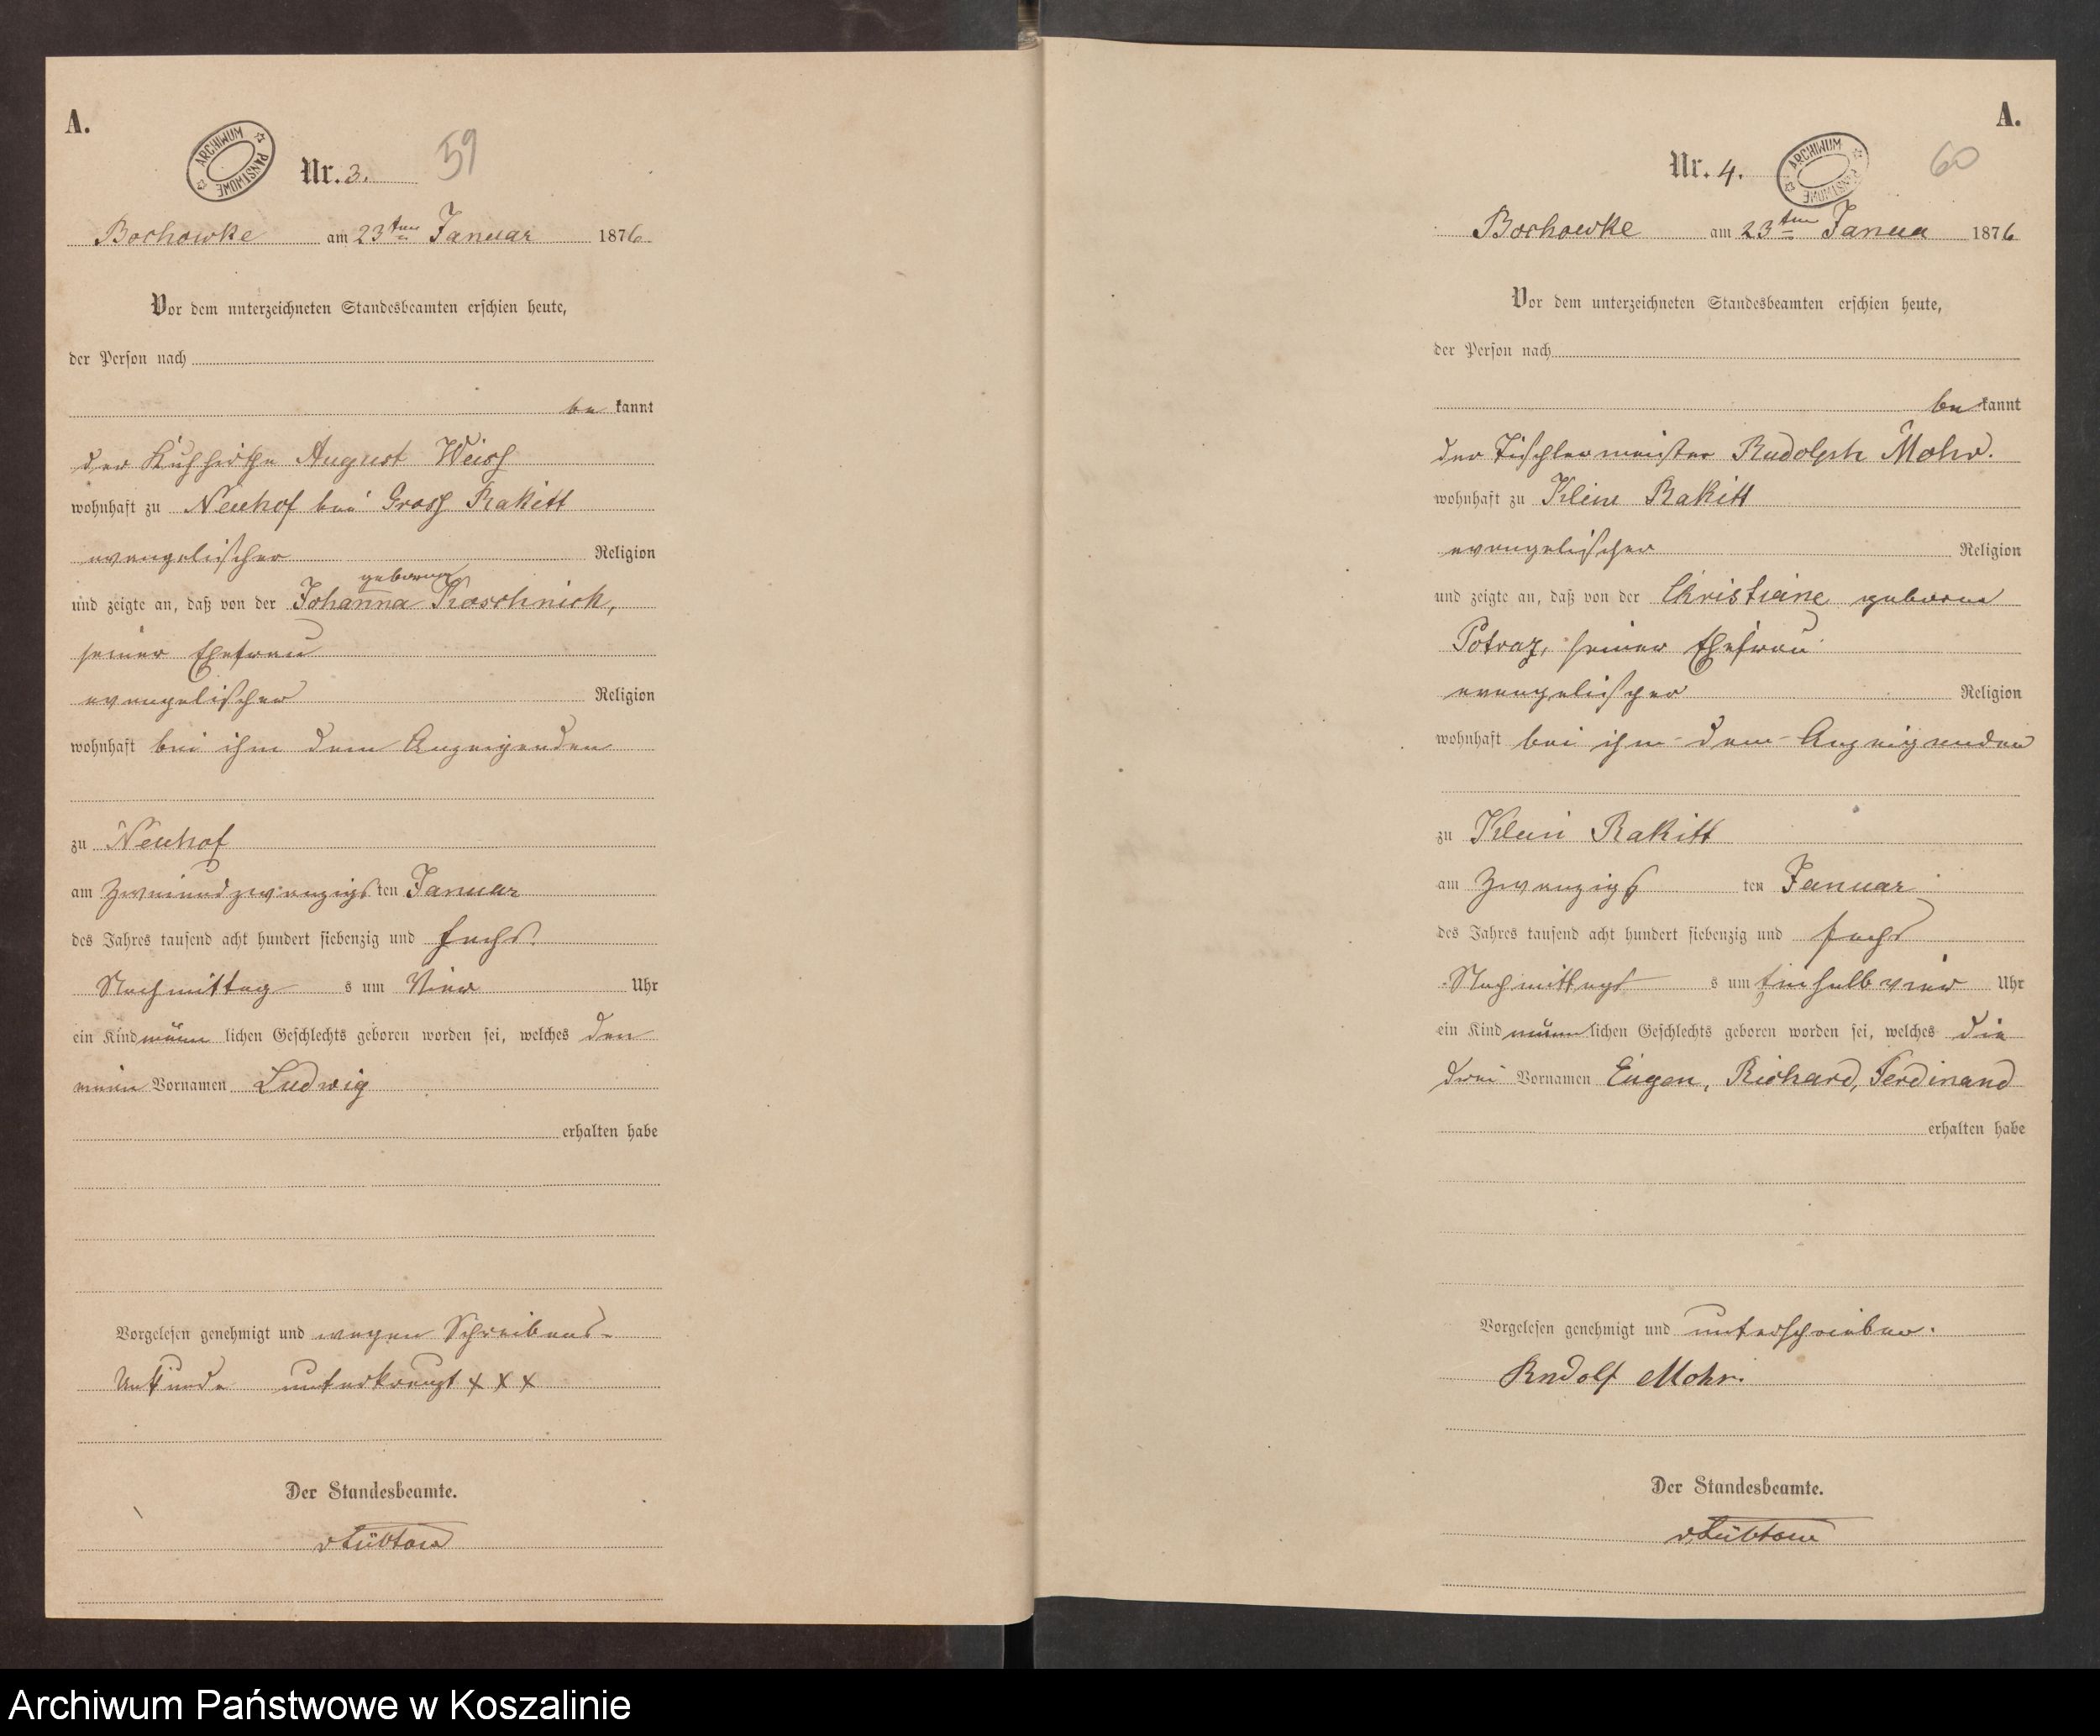 A.
ARCHIWUM PAŃSTWOWE
Nr. 3.
59
Bochowke am 23ten Januar 1876
Vor dem unterzeichneten Standesbeamten erschien heute,
der Person nach
be kannt
der Kuhhirthe August Weiss
wohnhaft zu Neuhof bei Gross Rakitt
evangelischer Religion
geborene
und zeigte an, daß von der Johanna
seiner Ehefrau
evangelischer Religion
wohnhaft bei ihm dem Anzeigenden
zu Neuhof
am Zweiundzwanzigsten Januar
des Jahres tausend acht hundert siebenzig und sechs
Nachmittag s um Vier Uhr
ein Kind männlichen Geschlechts geboren worden sei, welches den
einen Vornamen Ludwig
erhalten habe
Vorgelesen genehmigt und wegen Schreibens-
Unkunde unterkreuzt x x x
Der Standesbeamte.
v Lübtow
A.
Nr. 4.
ARCHIWUM PAŃSTWOWE
60
Bochowke am 23ten Janua 1876
Vor dem unterzeichneten Standesbeamten erschien heute,
der Person nach
be kannt
der Tischlermeister Rudolph Mohr.
wohnhaft zu Klein Rakitt
evangelischer Religion
und zeigte an, daß von der Christiane geborne
Potraz, seiner Ehefrau
evangelischer Religion
wohnhaft bei ihm - dem - Anzeigenden
zu Klein Rakitt
am Zwanzigsten Januar
des Jahres tausend acht hundert siebenzig und sechs
Nachmittags s um einhalb vier Uhr
ein Kind männlichen Geschlechts geboren worden sei, welches die
drei Vornamen Eugen, Richard, Ferdinand
erhalten habe
Vorgelesen genehmigt und unterschrieben.
Rudolf Mohr.
Der Standesbeamte.
v Lübtow
Archiwum Państwowe w Koszalinie